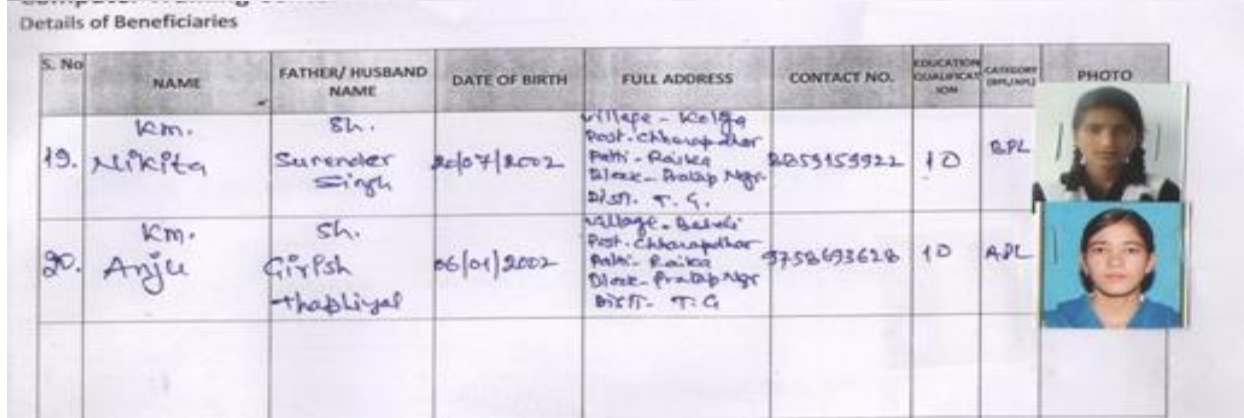 Details of Beneficiaries
S. No
NAME
FATHER/ HUSBAND
NAME
DATE OF BIRTH
FULL ADDRESS
CONTACT NO.
EDUCATION
QUALIFICAT
ION
CATEGORY
(BPL/APL)
PHOTO
19.
Km.
Nikita
Sh.
Surender
Singh
20/07/2002
Village -
Post - Chharapdhar
Patti - Raika
Block - Pratap Ngr.
Distt. T. G.
10
BPL
20.
Km.
Anju
Sh.
Girish
Thapliyal
06/01/2002
Village -
Post - Chharapdhar
Patti - Raika
Block - Pratap Ngr
Distt - T. G
9758693628
10
APL